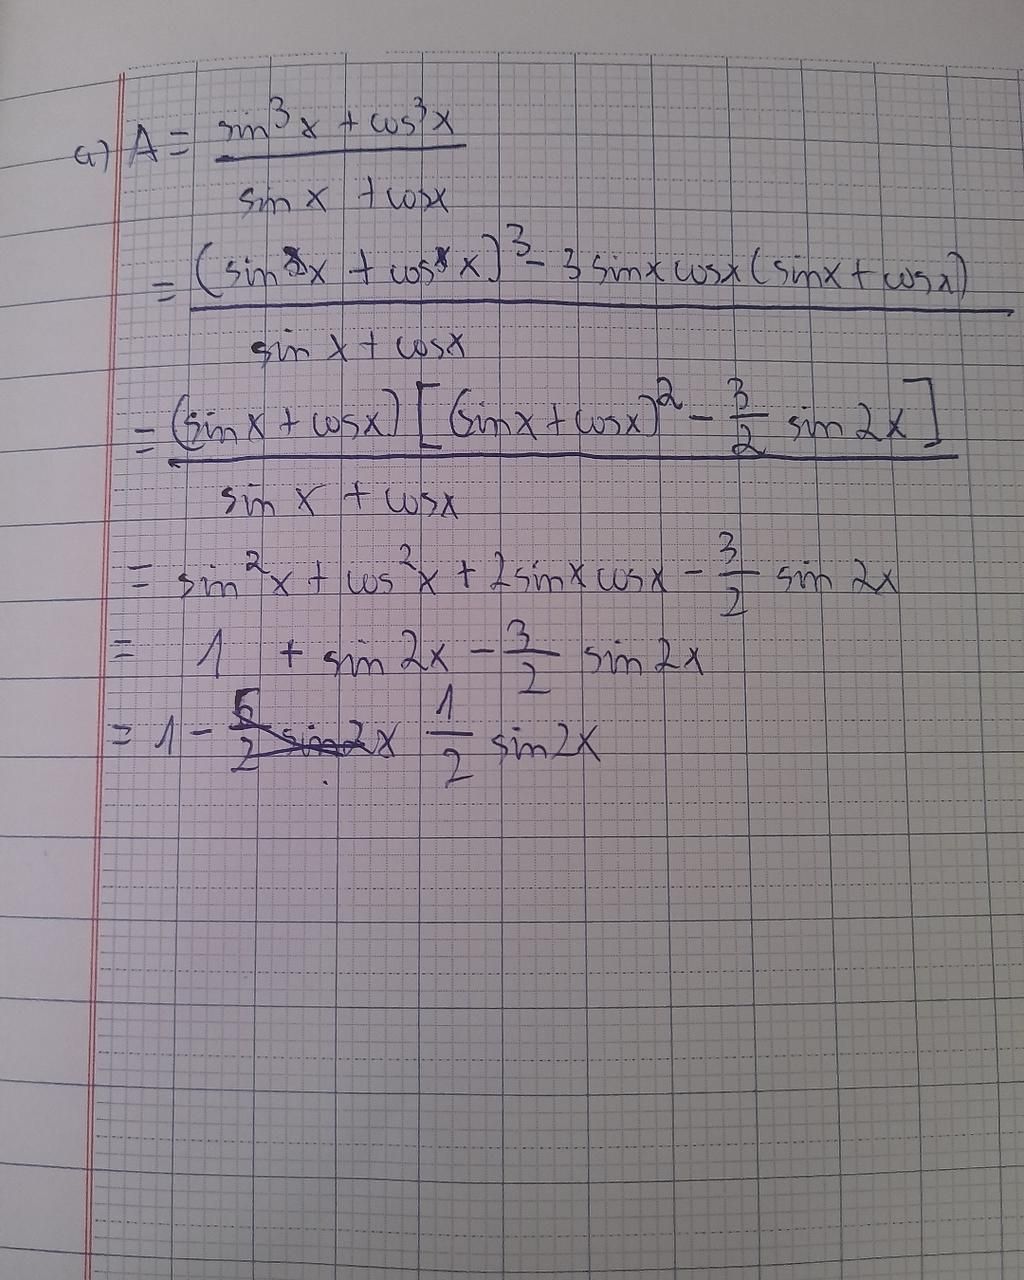 a) A = sin³x + cos³x
sin x + cosx
= (sin x + cos x)³ - 3 sinx cosx (sinx + cosx)
sin x + cosx
= (sin x + cosx) [(sinx + cosx)² - 3/2 sin 2x]
sin x + cosx
= sin²x + cos²x + 2sinx cosx - 3/2 sin 2x
= 1 + sin 2x - 3/2 sin 2x
= 1 - 1/2 sin 2x